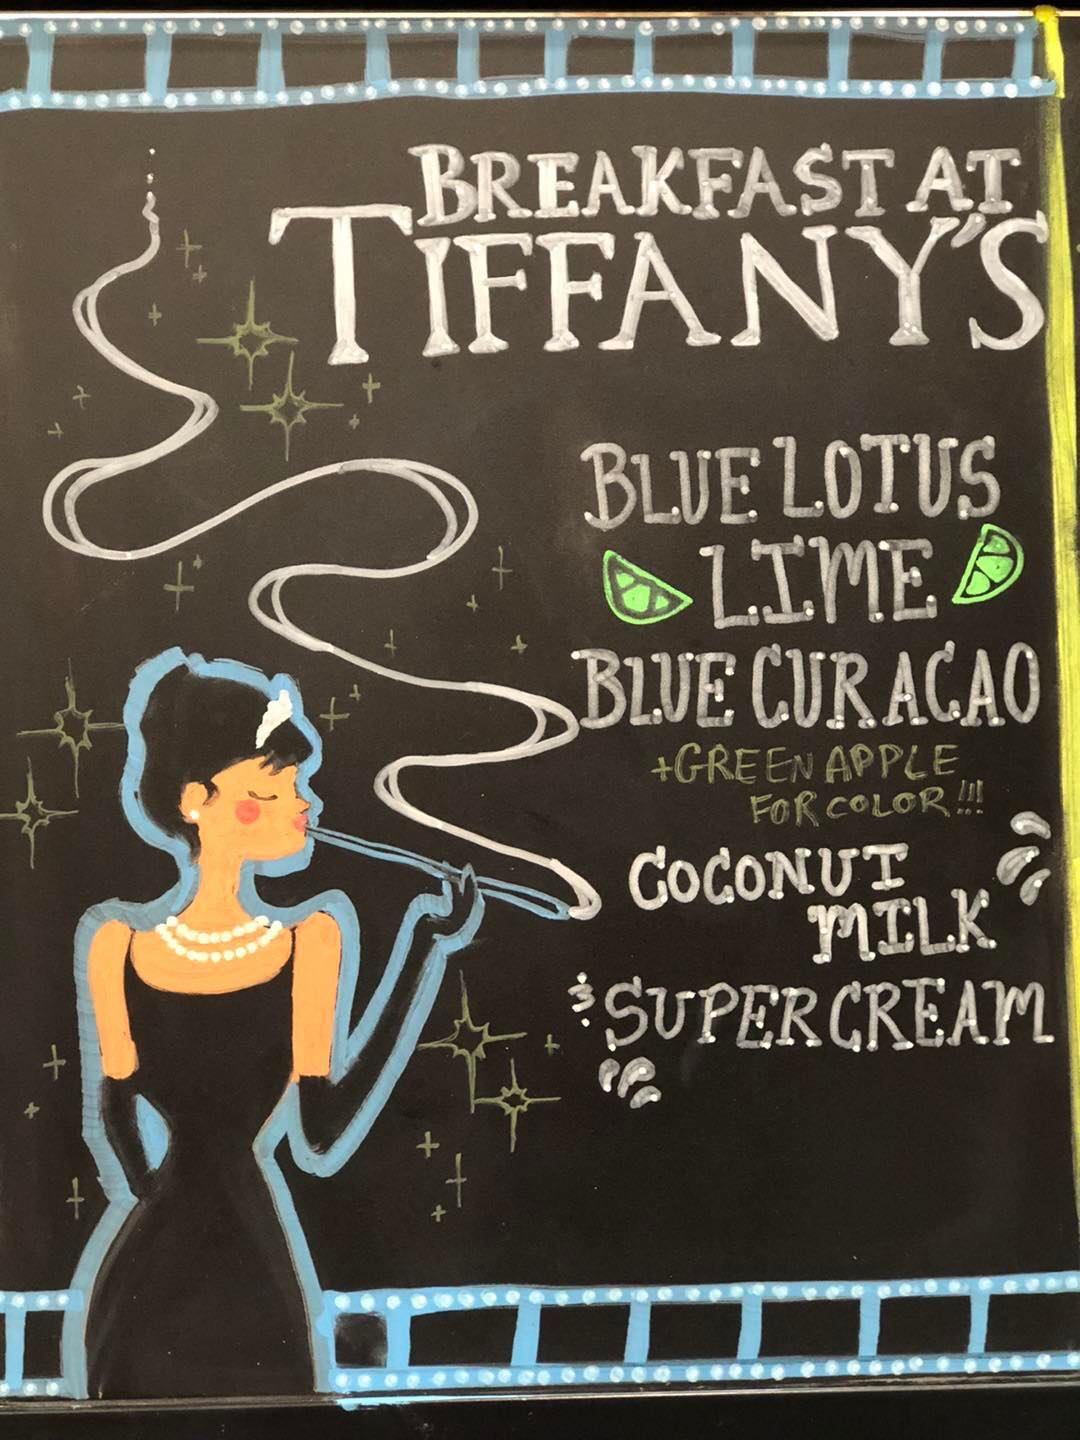 BREAKFAST AT
TIFFANY'S
BLUE LOTUS
LIME
BLUE CURACAO
+GREEN APPLE
FOR COLOR!!!
COCONUT
MILK
& SUPERCREAM